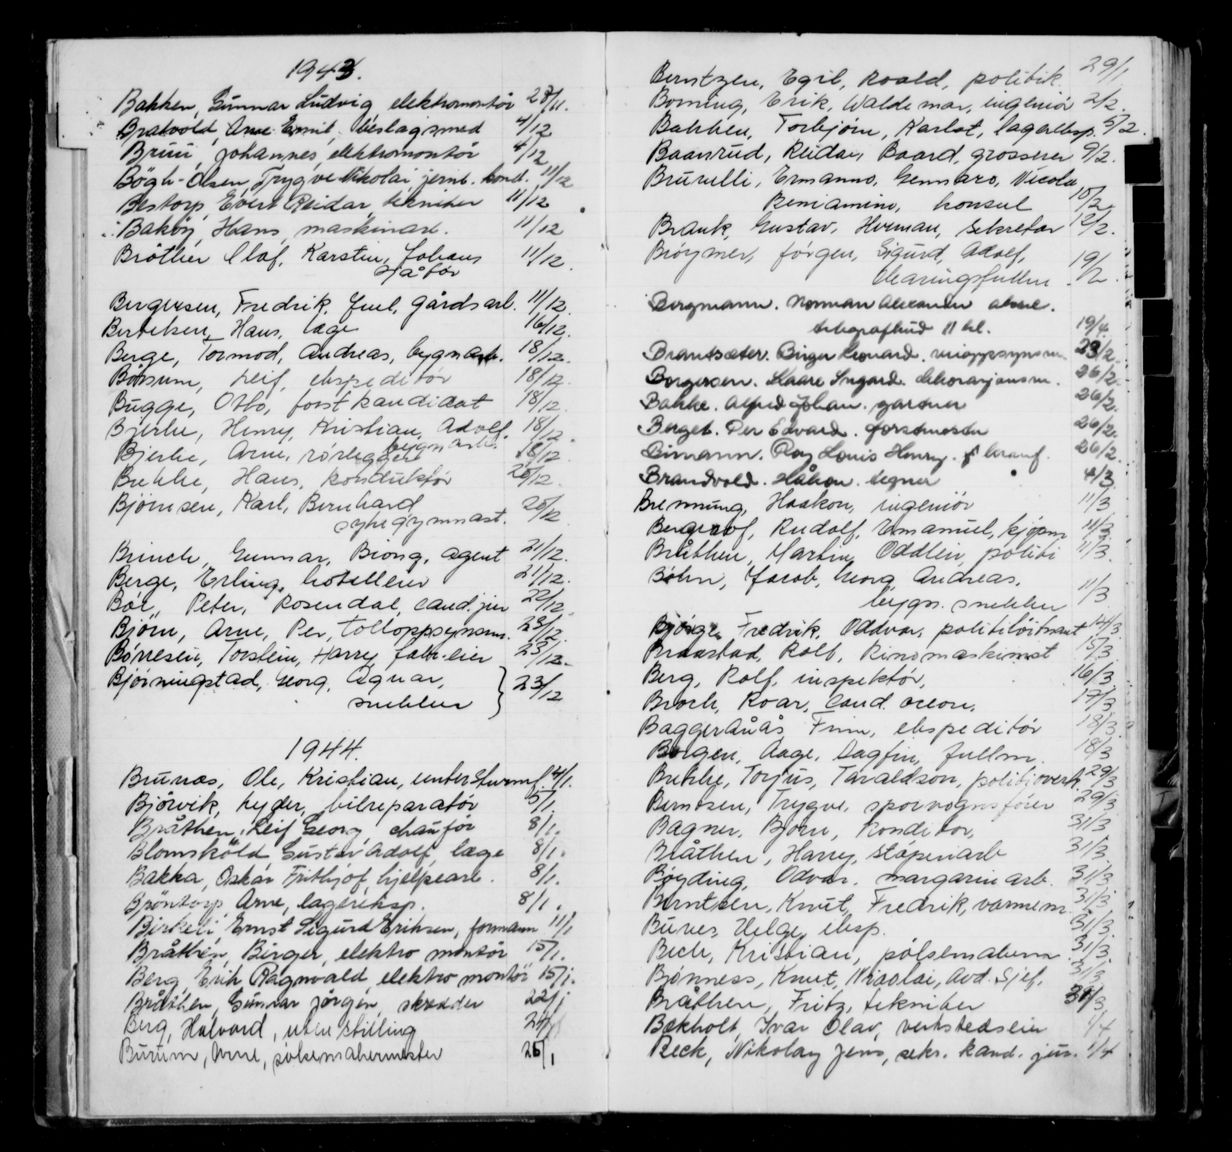 1943.
Bakken, Gunnar Ludvig elektromontør 28/11.
Bratvold, Arne Emil, Veslagsmed 4/12
Bruu, Johannes, elektromontør 4/12
Bögh-Olsen, Trygve Nikolai jernb. kond. 11/12
Bestorp, Evert Reidar, tekniker 11/12
Bakøy, Hans, maskinarb. 11/12
Bråthen Olaf, Karsten, Johans 11/12.
sjåfør
Bergersen, Fredrik, Juul, gårdsarb. 11/12.
Bertelsen, Hans, læge 16/12.
Berge, Tormod, Andreas, bygnarb. 18/12.
Börsum, Leif, ekspeditör 18/12.
Bugge, Otto, forstkandidat 18/12.
Bjerke, Henry, Kristian, Adolf. 18/12.
bygn.arb.
Bjerke, Arne, rörleggere 18/12.
Brekke, Hans, konduktör 20/12.
Björnsen, Karl, Bernhard 20/12
sykegymnast.
Brinch, Gunnar, Biong, agent 21/12.
Berge, Erling, hotelleier 21/12.
Bøe, Peter, Rosendal, cand. jur 22/12.
Bjørn, Arne, Per, tolloppsynsm. 23/12.
Børresen, Torstein, Harry fabr.eier 23/12.
Bjørningstad, Georg, Agnar, 23/12
snekker
1944.
Brunæs, Ole, Kristian, untersturmf. 4/1.
Bjørvik, Lyder, bilreparatør 5/1.
Bråthen, Leif Georg chaufør 8/1.
Blomsköld Gustav Adolf, læge 8/1.
Bakka, Oskar Frithjof, hjelpearb. 8/1.
Bröntorp Arne, lagereksp. 8/1.
Birkeli Ernst Sigurd Eriksen, formann 11/1
Bråthen, Birger, elektro montør 15/1.
Berg, Erik Ragnvald, elektro montör 15/1.
Bråthen, Gunnar Jørgen skredder 22/1
Berg, Halvard, uten stilling
Burum, Arne, pølsemakermester 26/1
Berntzen, Egil, Roald, politik. 29/1
Borning, Erik, Waldemar, ingeniør 2/2.
Bakken, Torbjørn, Karlot, lagereksp. 5/2.
Baanrud, Reidar, Baard, grosserer 9/2.
Brunelli, Ermanno, Gennaro, Nicola
Beniamino, konsul 10/2.
Brauk, Gustav, Herman, Sekretær 12/2.
Brøymer, Jørgen, Sigurd, Adolf, 19/2.
Clearingsfullm.
Bergmann. Norman Alexander
telegrafbud 11 kl. 19/4
Brantsæter. Birger Leonard. 23/2.
Borgersen. Kaare Yngard. dekorasjonsm. 26/2.
Bakke. Alfred Johan. gartner 26/2.
Berget. Per Edvard. forsomester 26/2.
Bimann. Roy Louis Henry. 26/2
Brandvold. Håkon. tegner 4/3
Brenning, Haakon, ingeniör 11/3
Bergerof, Rudolf, Emanuel, kjøpm 11/3
Bråthen, Martin, Oddlen, politi 11/3.
Böhn, Jacob, Georg Andreas, 11/3
bygn. snekker
Bjørge, Fredrik, Oddvar, politilöitnant 14/3.
Braastad, Rolf, Kinomaskinist 15/3
Berg, Rolf, inspektör, 16/3
Broch, Roar, Cand. oecon. 17/3
Baggeraaås Finn, ekspeditör 18/3.
Borgen, Aage, Dagfin, fullm. 18/3
Brekke, Torjus, Taraldson, politioverk. 29/3
Berntsen, Trygve, sporvognsfører 29/3
Bagner, Bjørn, Konditor, 31/3
Bråthen, Harry, støperiarb 31/3
Bøyding, Odvar. margarinarb. 31/3.
Berntsen, Knut, Fredrik, varmem. 31/3.
Bures Helge, eksp. 31/3.
Bech, Kristian, pølsemakerm. 31/3.
Bjønness, Knut, Nicolai, avd. Sjef. 31/3
Bråthen, Fritz, tekniker 31/3
Bækholt, Ivar Olav, verkstedseier 1/4
Beck, Nikolay Jens, sekr. kand. jur. 1/4